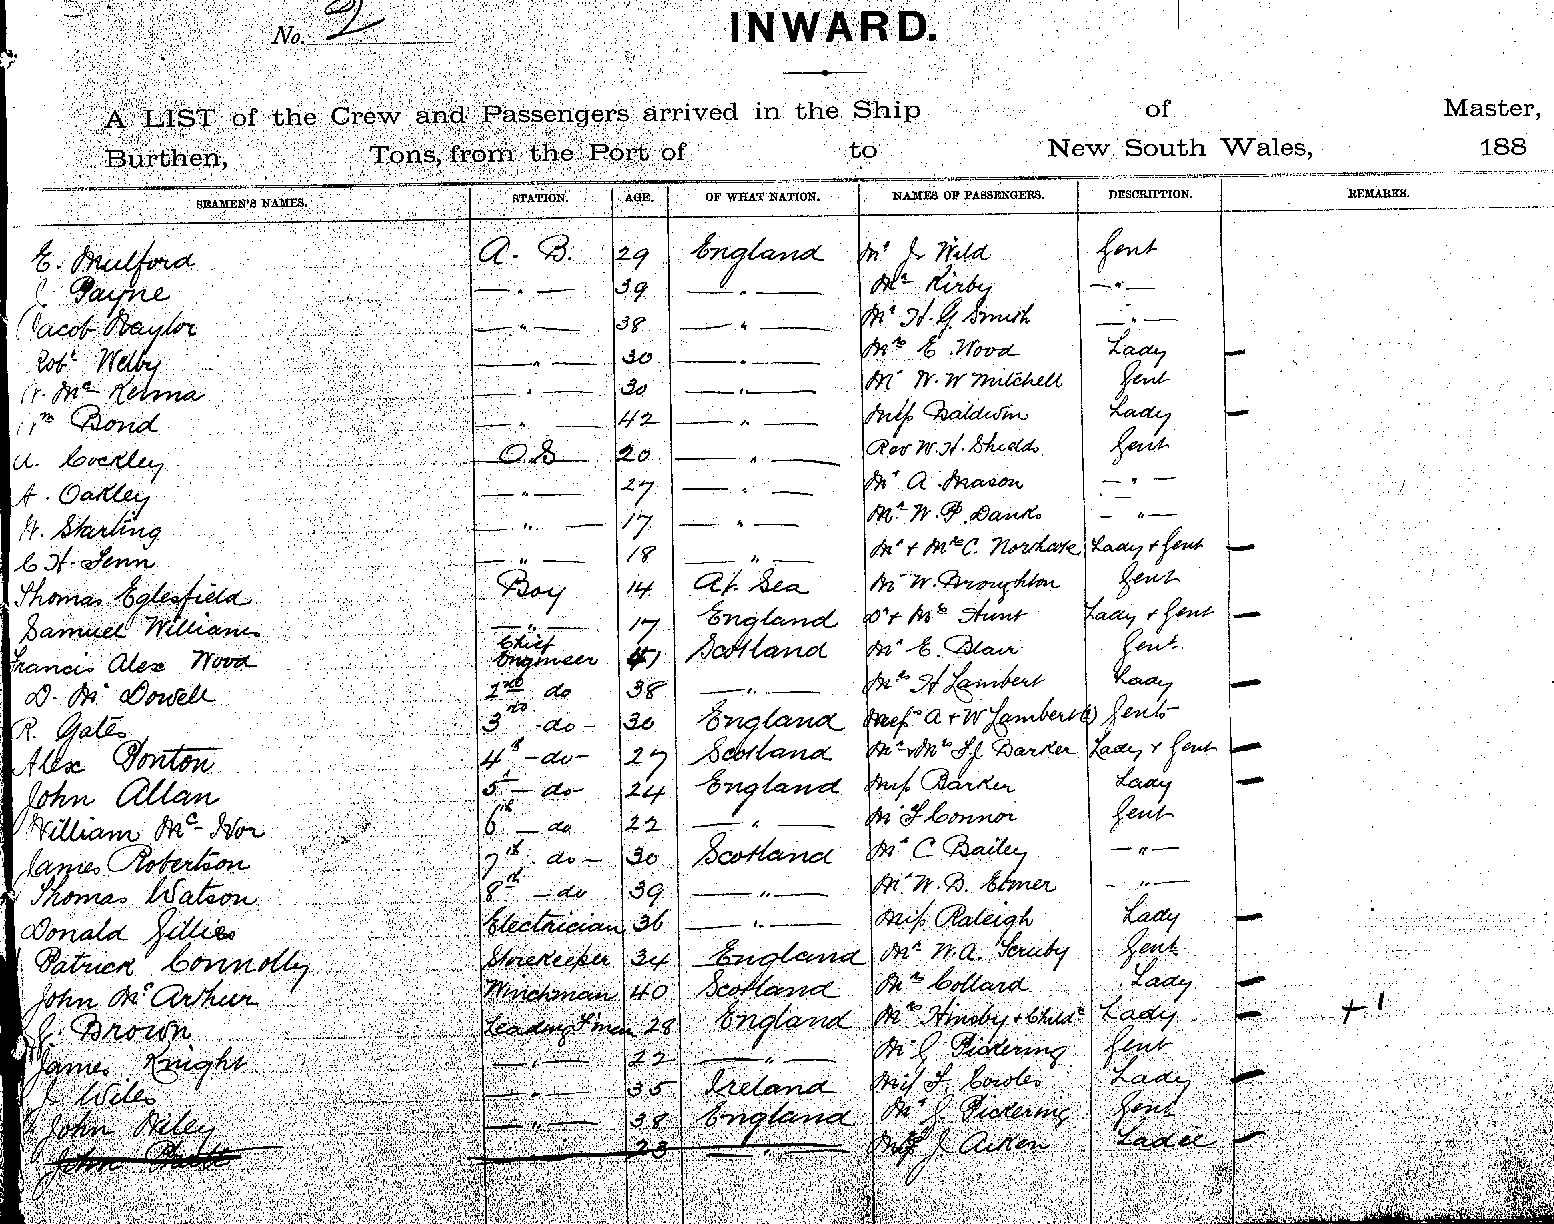 No. 2
INWARD.
A LIST of the Crew and Passengers arrived in the Ship of Master,
Burthen, Tons, from the Port of to New South Wales, 188
SEAMEN'S NAMES. STATION. AGE. OF WHAT NATION. NAMES OF PASSENGERS. DESCRIPTION. REMARKS.
E. Mulford A. B. 29 England Mr J. Wild Gent
Payne — " — 39 — " — Mr Kirby — " —
Jacob Naylor — " — 38 — " — Mr H. G. Smith — " —
Robt Welby — " — 30 — " — Mrs E. Wood Lady —
Mc Kenna — " — 30 — " — Mr W. W Mitchell Gent
Wm Bond — " — 42 — " — Miss Baldwin Lady —
A. Cockley O.S 20 — " — Rev W. H. Shedds Gent
A. Oakley — " — 27 — " — Mr A. Mason — " —
W. Starling — " — 17 — " — Mr W. P. Danks — " —
C H. Fenn — " — 18 — " — Mr + Mrs C. Lady + Gent —
Thomas Eglesfield Boy 14 At Sea Mr W. Broughton Gent
Samuel Williams — " — 17 England Dr + Mrs Hunt Lady + Gent —
Francis Alex Wood Chief Engineer Scotland Mr E. Blair Gent
D. Mc Dowell 2nd do 38 — " — Mrs H Lambert Lady —
R. Gates 3rd - do - 30 England A + W Lambert (2) Gents
Alex Ponton 4th - do - 27 Scotland Mr + Mrs F J Barker Lady + Gent —
John Allan 5th - do 24 England Miss Barker Lady —
William Mc Ivor 6th - do 22 — " — Mr F Connor Gent
James Robertson 7th do - 30 Scotland Mr C Bailey — " —
Thomas Watson 8th - do 39 — " — Mr W. B. Elmer — " —
Donald Gillies Electrician 36 — " — Miss Raleigh Lady —
Patrick Connolly Storekeeper 34 England Mr W. A. Scruby Gent
John McArthur Winchman 40 Scotland Mrs Collard Lady —
J. Brown Leading F'man 28 England Mrs Hinsby + Child Lady — + 1
James Knight — " — 22 — " — Mr J Pickering Gent
J Wiles — " — 35 Ireland Miss F. Cowles Lady —
John Riley — " — 38 England Mr J. Pickering Gent
John 23 — " — Miss J. Aiken Ladie —